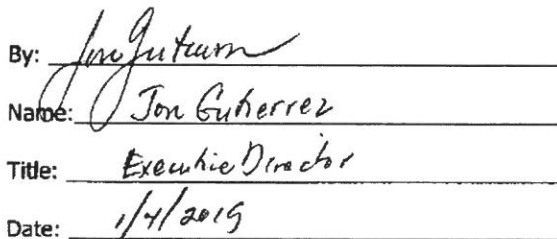 By: Jon Gutierrez
Name: Jon Gutierrez
Title: Executive Director
Date: 1/4/2019